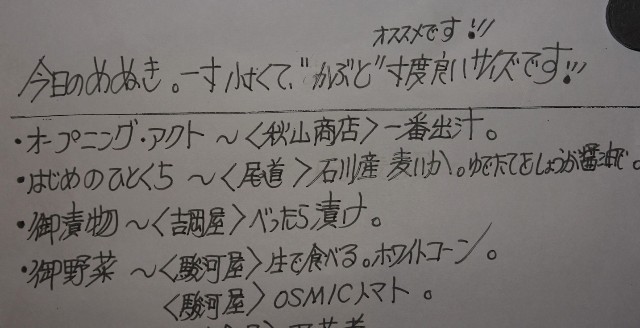 オススメです!!!
今日のめぬき。一寸小さくて、"かぶと"寸度良いサイズです!!!
・オープニング・アクト 〜〈秋山商店〉一番出汁。
・はじめのひとくち 〜〈尾道〉石川産 麦いか。ゆでたてをしょうが醤油で。
・御漬物 〜〈吉岡屋〉べったら漬け。
・御野菜 〜〈駿河屋〉生で食べる。ホワイトコーン。
〈駿河屋〉OSMICトマト。